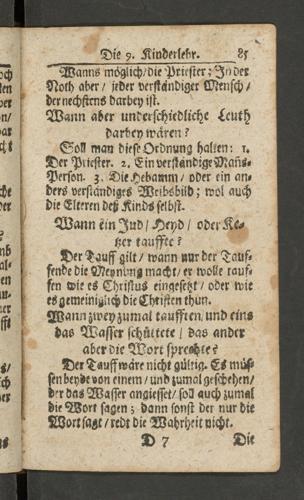 Die 9. Kinderlehr. 85
Wanns möglich/die Priester; In der
Noth aber/ jeder verständiger Mensch/
der nechstens darbey ist.
Wann aber underschiedliche Leuth
darbey wären?
Soll man diese Ordnung halten: 1.
Der Priester. 2. Ein verständige Mans-
Person. 3. Die Hebamm/ oder ein an-
ders verständiges Weibsbild; wol auch
die Elteren deß Kinds selbst.
Wann ein Jud/ Heyd/ oder Ke-
tzer tauffte?
Der Tauff gilt/ wann nur der Tauf-
fende die Meynung macht/ er wolle tauf-
fen wie es Christus eingesetzt/ oder wie
es gemeiniglich die Christen thun.
Wann zwey zumal taufften, und eins
das Wasser schüttete/ das ander
aber die Wort sprechte?
Der Tauff wäre nicht gültig. Es müs-
sen beyde von einem/ und zumal geschehen/
der das Wasser angiesset/ soll auch zumal
die Wort sagen; dann sonst der nur die
Wort sagt/ redt die Wahrheit nicht.
D 7 Die